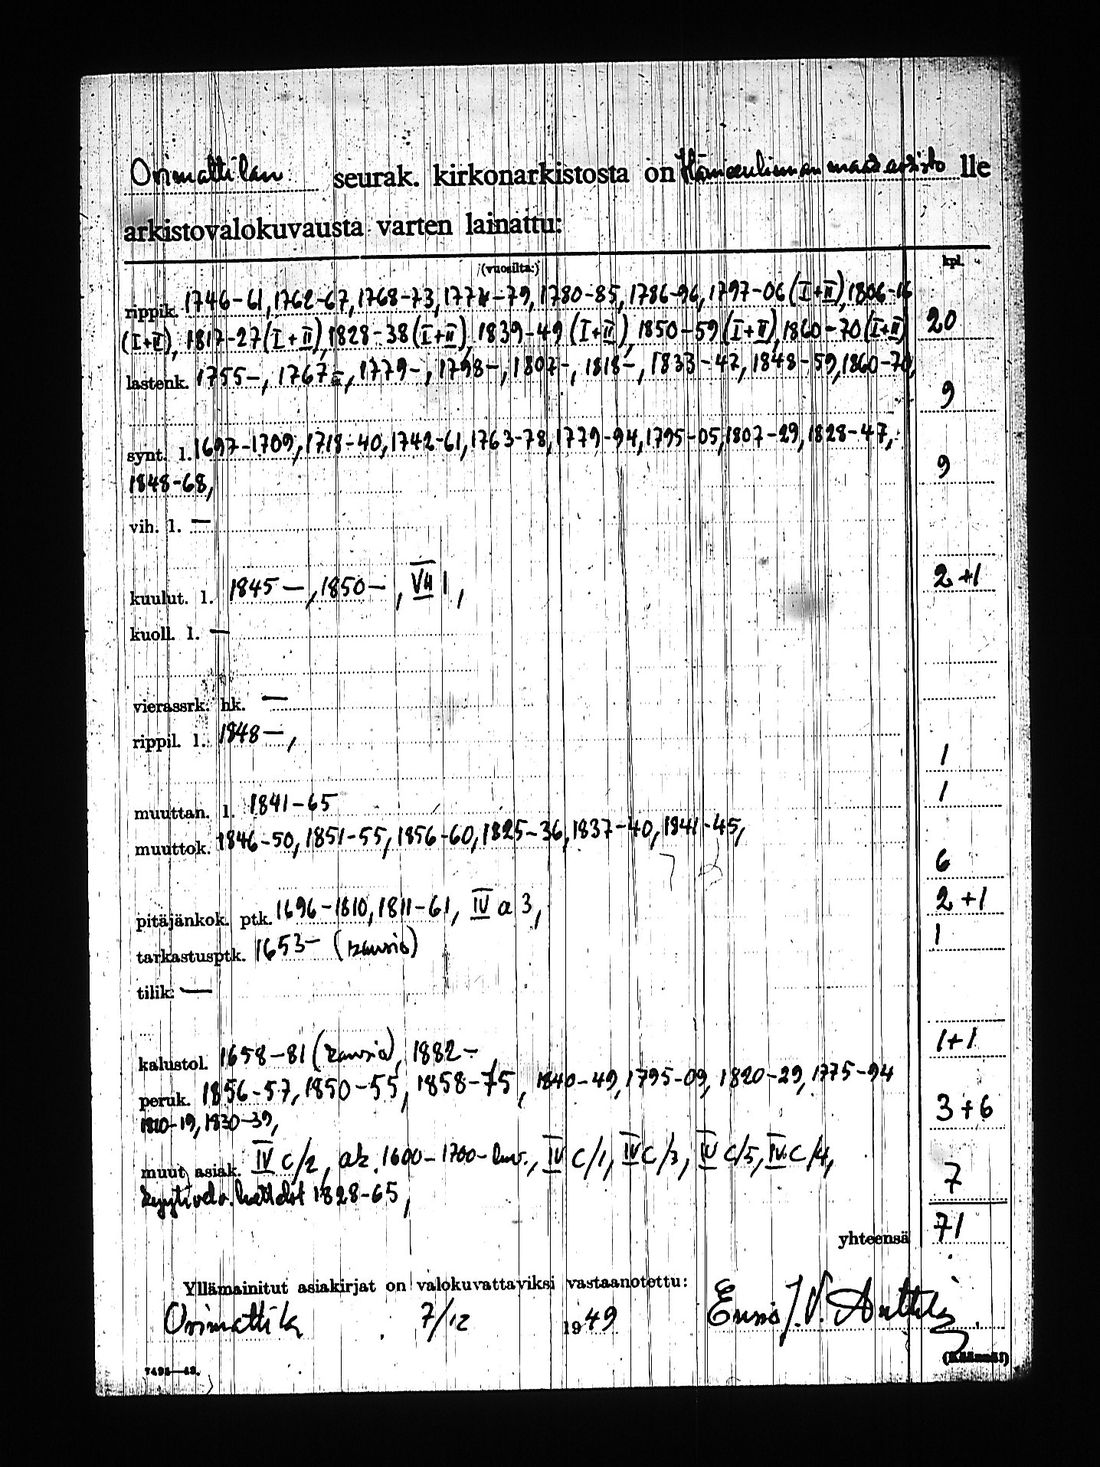 Orimattilan seurak. kirkonarkistosta on Hämeenlinnan maakarkisto lle
arkistovalokuvausta varten lainattu:
(vuosilta:) kpl.
rippik. 1746-61, 1762-67, 1768-73, 1774-79, 1780-85, 1786-96, 1797-06 (I+II), 1806-16
(I+II), 1817-27 (I+II), 1828-38 (I+II), 1839-49 (I+II), 1850-59 (I+II), 1860-70 (I+II) 20
lastenk. 1755-, 1767-, 1779-, 1798-, 1807-, 1818-, 1833-47, 1848-59, 1860-70, 9
synt. l. 1697-1709, 1718-40, 1742-61, 1763-78, 1779-94, 1795-05, 1807-29, 1828-47,
1848-68, 9
vih. l. —
kuulut. l. 1845 —, 1850 —, VII 1, 2+1
kuoll. l. —
vierassrk. hk. —
rippil. l. 1848 —, 1
muuttan. l. 1841-65 1
muuttok. 1846-50, 1851-55, 1856-60, 1825-36, 1837-40, 1841-45, 6
pitäjänkok. ptk. 1696-1810, 1811-61, IV a 3, 2+1
tarkastusptk. 1653- (kansio) 1
tilik. —
kalustol. 1658-81 (kansio), 1882 - 1+1
peruk. 1856-57, 1850-55, 1858-75, 1840-49, 1795-09, 1820-29, 1775-94
1810-19, 1830-39, 3+6
muut asiak. IV c/2, ak. 1600-1700-luv., IV c/1, IV c/3, IV c/5, IV c/4,
1828-65, 7
yhteensä 71
Yllämainitut asiakirjat on valokuvattaviksi vastaanotettu:
Orimattila 7/12 1949 J. V. Anttila
(Käännä!)
7491—48.